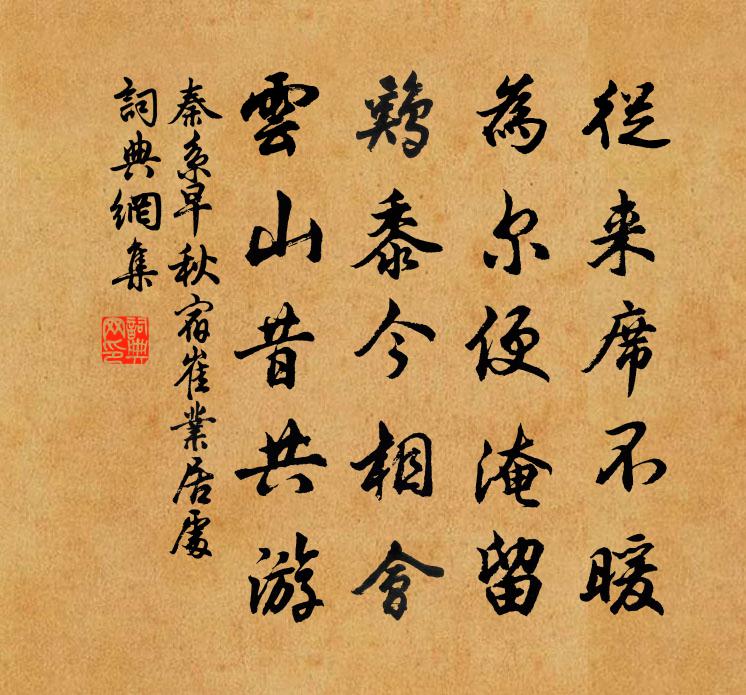 從来席不暖
為尔便淹留
鷄黍今相會
雲山昔共游
秦系早秋宿崔業居處
詞典網集
詞典網印